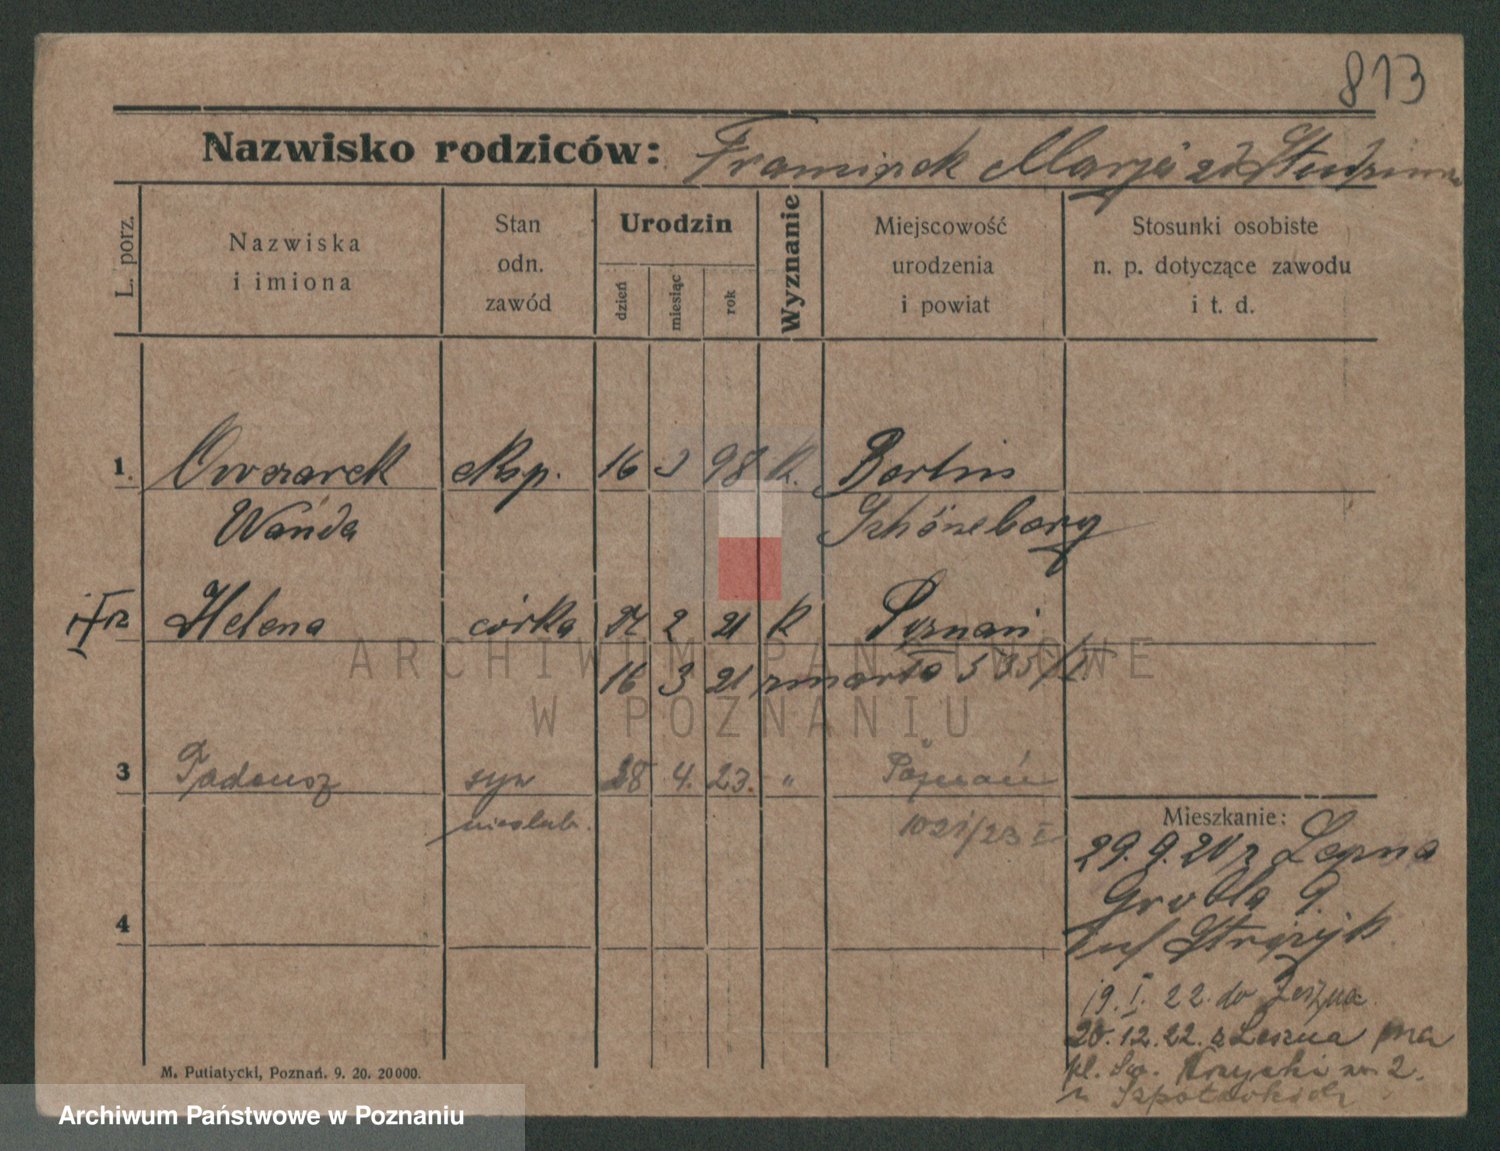 813
Nazwisko rodziców: Franciszek Marja zd
L. porz.
Nazwiska
i imiona
Stan
odn.
zawód
Urodzin
dzień
miesiąc
rok
Wyznanie
Miejscowość
urodzenia
i powiat
Stosunki osobiste
n. p. dotyczące zawodu
i t. d.
1. Owczarek 16 3 98 K. Berlin
Wanda Schöneberg
Helena córka 2 21 K Poznań
16 3 21 zmarła
3 Tadeusz syn 28 4. 23. " Poznań
nieślub. 1021/23
Mieszkanie:
29. 9. 20 z Leszna
Grobla 9.
4
19. I. 22. do Leszna
20. 12. 22. z Leszna na
pl. Św. Krzyski nr 2.
M. Putiatycki, Poznań. 9. 20. 20000.
ARCHIWUM PAŃSTWOWE
W POZNANIU
Archiwum Państwowe w Poznaniu